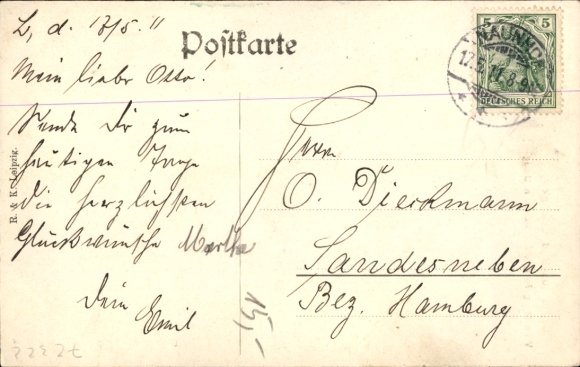 L, d. 17/5. 11
Postkarte
Mein lieber Otto!
Sende Dir zum
heutigen Tage
die herzlichsten
Glückwünsche Martha
Dein
Emil
Herrn
O. Dieckmann
Sandesneben
Bez. Hamburg
5 5
DEUTSCHES REICH
NAUNHOF
17.5.11.8-9
R. & K. Leipzig.
15,-